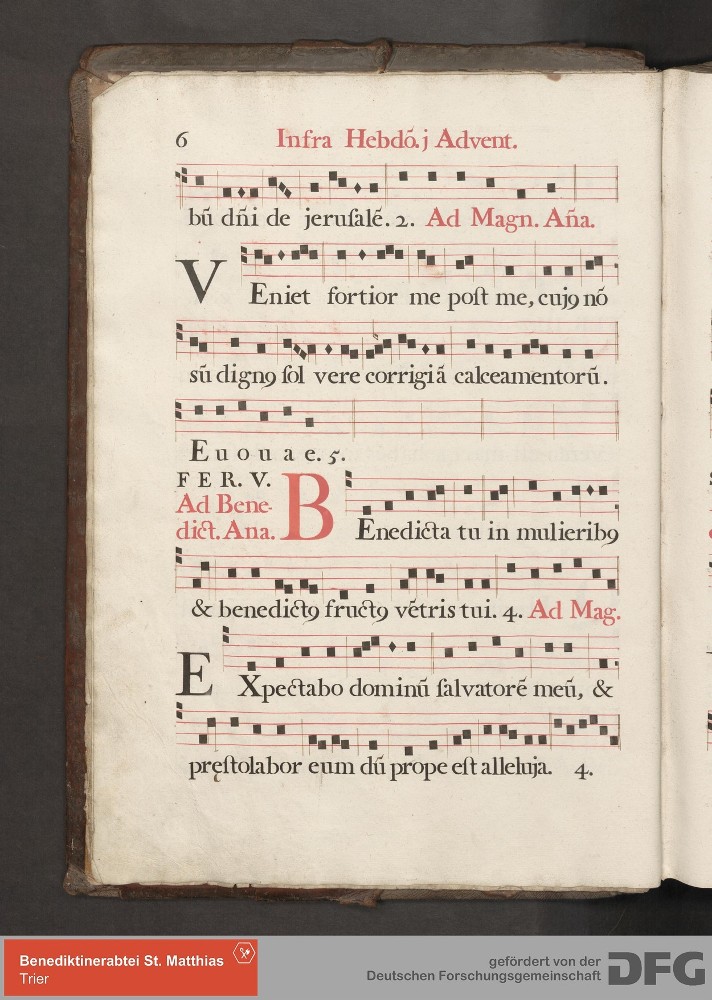 6 Infra Hebdō. j Advent.
bū dn̄i de jeruſalē. 2. Ad Magn. An̄a.
VEniet fortior me poſt me, cujꝯ nō
sū dignꝯ ſol vere corrigiā calceamentorū.
E u o u a e. 5.
FER. V.
Ad Bene-
dict. Ana.
BEnedicta tu in mulieribꝯ
& benedictꝯ fructꝯ vētris tui. 4. Ad Mag.
EXpectabo dominū ſalvatorē meū, &
pręſtolabor eum dū prope eſt alleluja. 4.
Benediktinerabtei St. Matthias
Trier
gefördert von der
Deutschen Forschungsgemeinschaft
DFG